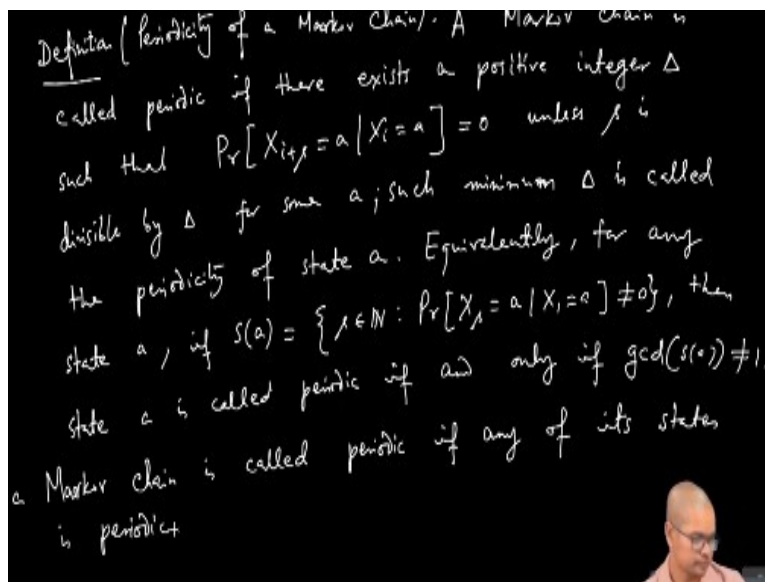 Definition (Periodicity of a Markov Chain). A Markov Chain is
called periodic if there exists a positive integer Δ
such that Pr[X_{i+s} = a | X_i = a] = 0 unless s is
divisible by Δ for some a; such minimum Δ is called
the periodicity of state a. Equivalently, for any
state a, if S(a) = {s ∈ ℕ : Pr[X_s = a | X_1 = a] ≠ 0}, then
state a is called periodic if and only if gcd(S(a)) ≠ 1,
a Markov chain is called periodic if any of its states
is periodic